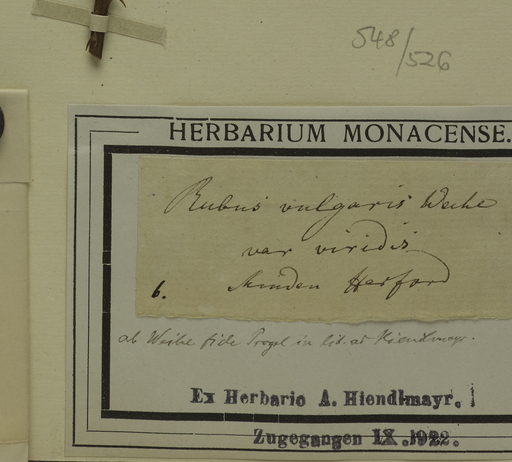 548/526
HERBARIUM MONACENSE.
Rubus vulgaris Weihe
var viridis
6. Minden Herford
ab Weihe fide Progel in lit. ad Hiendlmayr.
Ex Herbario A. Hiendlmayr.
Zugegangen IX.1922.